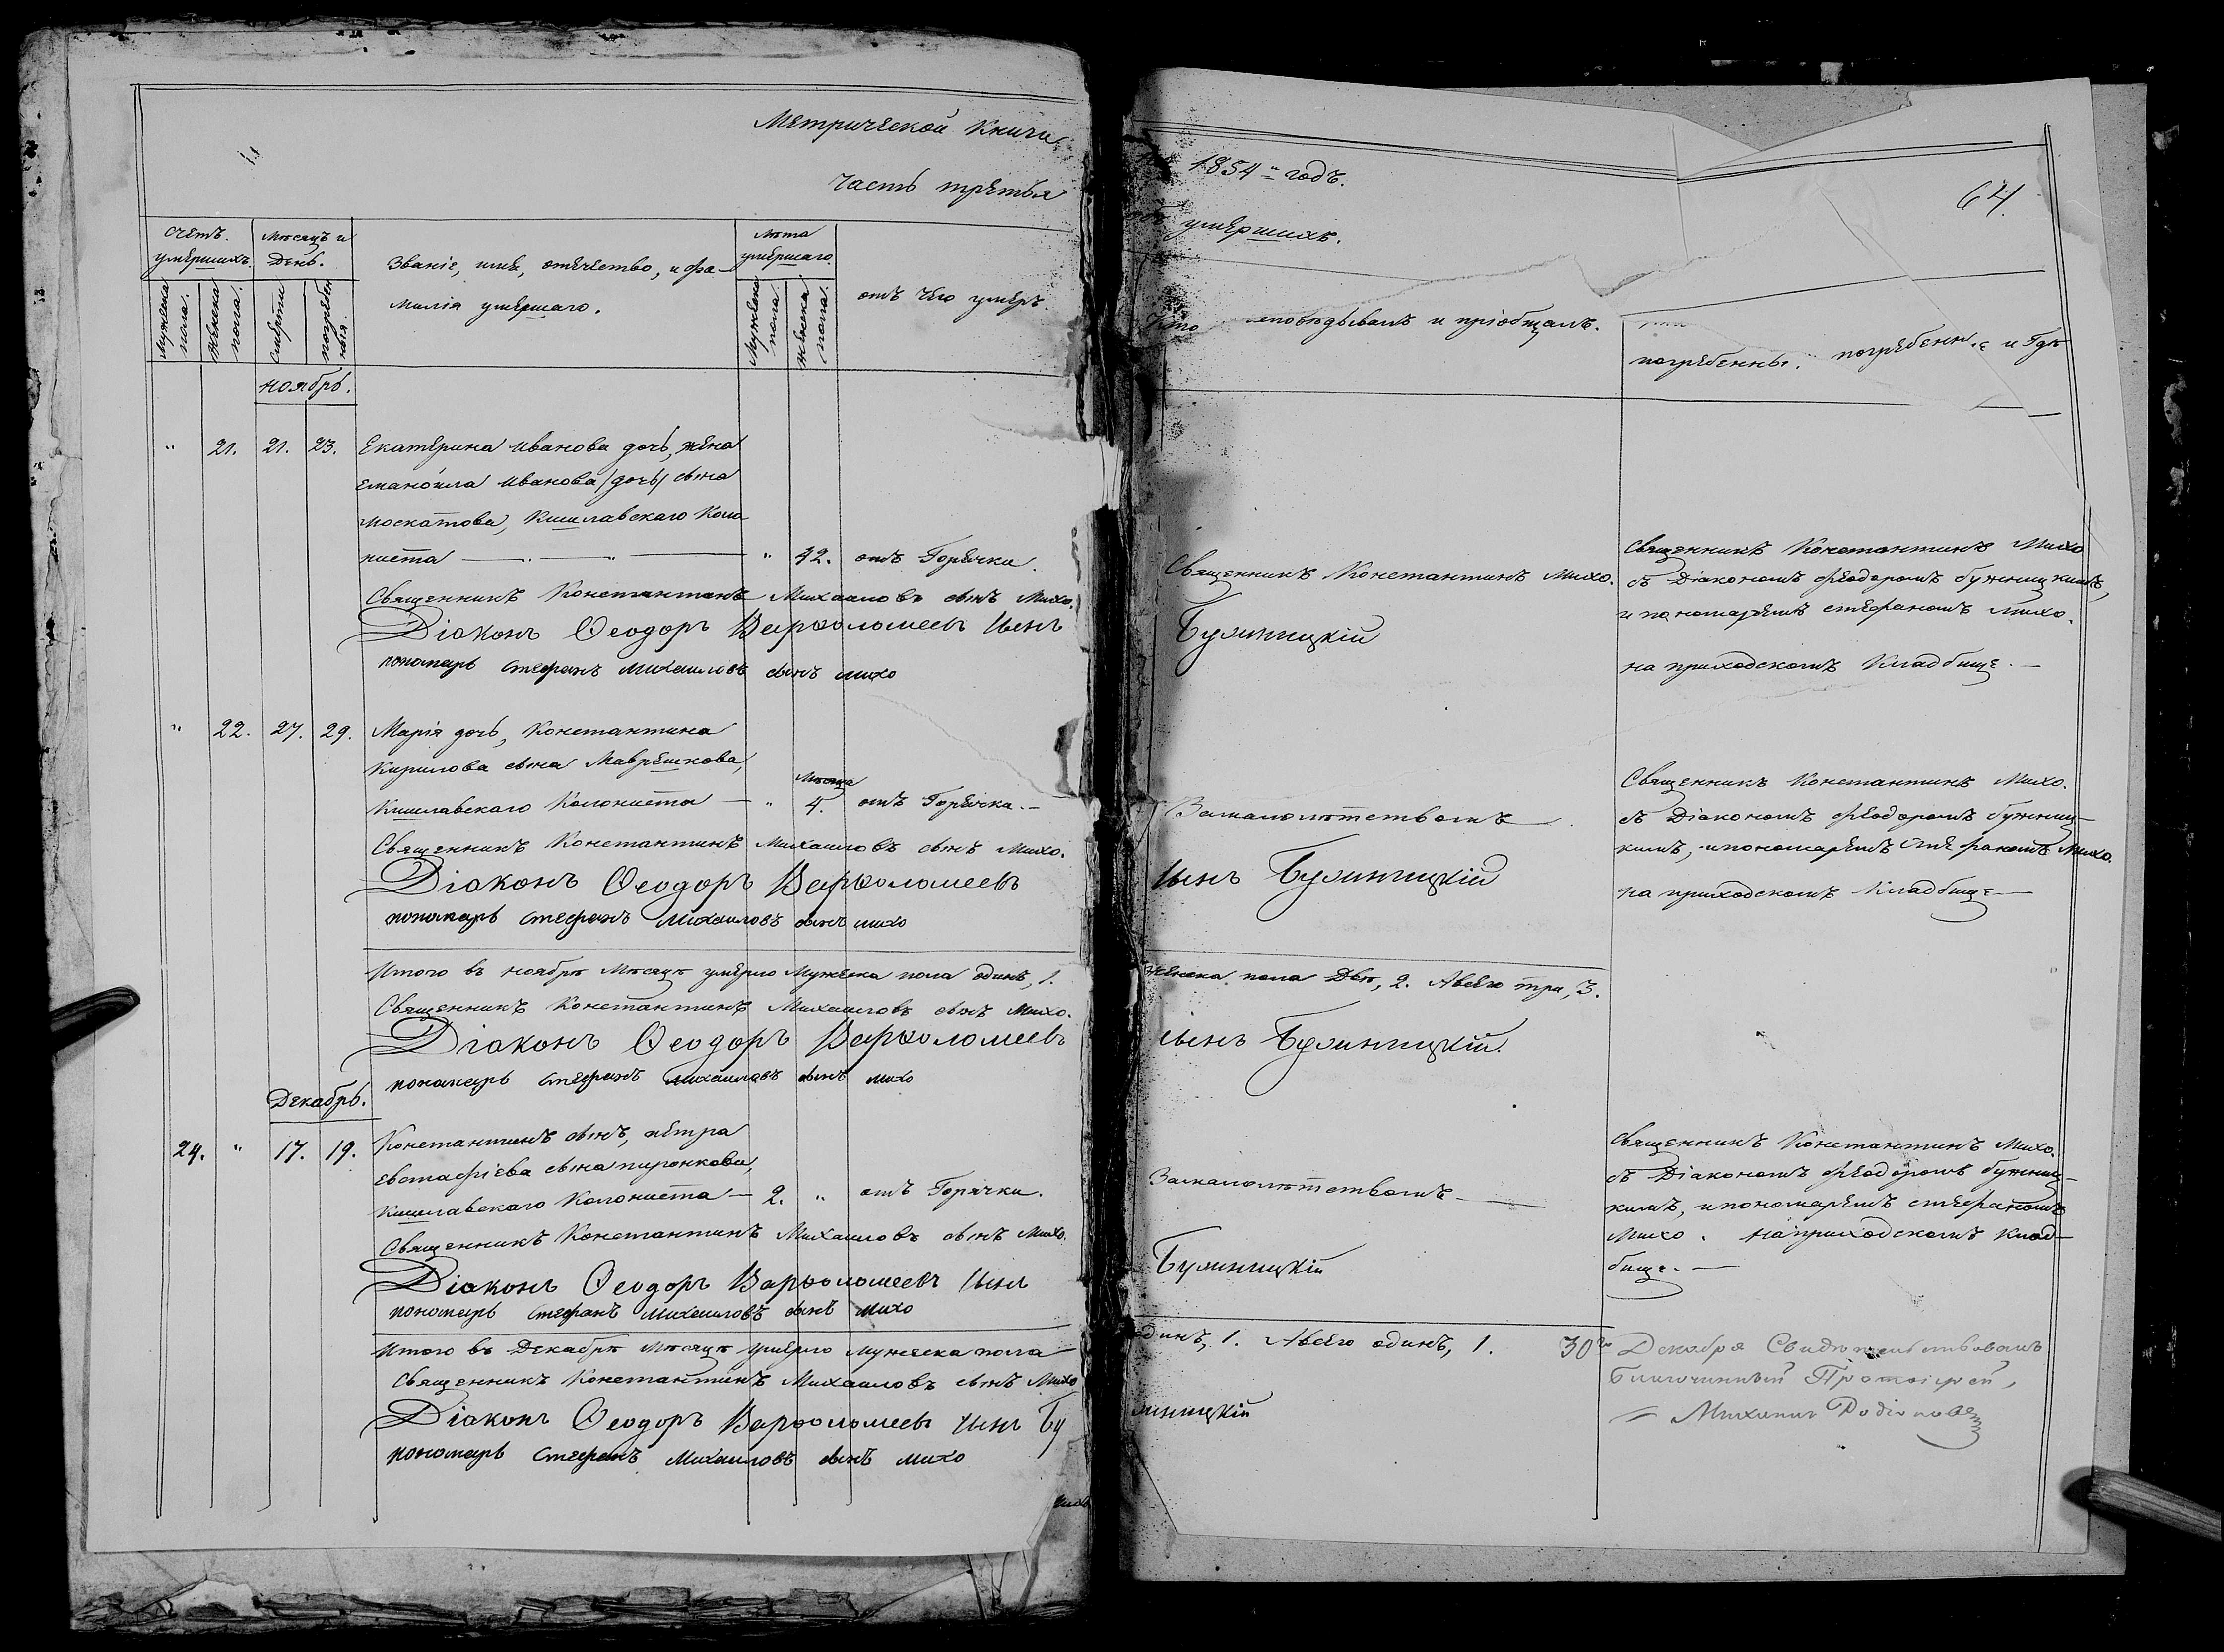 Метрической Книги
часть третья
счетъ умершихъ.
Мѣсяцъ и День.
Званіе, имя, отечество, и фа-
милія умершаго.
лѣта умершаго.
отъ чего умеръ.
Мужеска пола.
Женска пола.
смерти
погребенія.
Мужеска пола.
Женска пола.
ноябрь.
" 21. 21. 23. Екатерина Иванова дочь, жена
Еманоила Иванова /дочь/ сына
москатова, Кишлавскаго Коло
ниста " 42. отъ Горячки.
Священникъ Константинъ Михаиловъ сынъ Михо.
Діаконъ Ѳеодоръ Варѳоломеевъ сынъ
пономарь стефанъ михаиловъ сынъ михо
" 22. 27. 29. Марія дочь, Константина
Кирилова сына Маврешкова,
Кишлавскаго Колониста — " мѣсяца 4. отъ Горячки.—
Священникъ Константинъ Михаиловъ сынъ Михо.
Діаконъ Ѳеодоръ Варѳоломеевъ
пономарь стефанъ михаиловъ сынъ михо
Итого въ ноябрѣ Мѣсяцѣ умерло Мужеска пола одинъ, 1.
Священникъ Константинъ Михаиловъ сынъ Михо.
Діаконъ Ѳеодоръ Варѳоломеевъ
пономарь стефанъ михаиловъ сынъ михо
Декабрь.
24. " 17. 19. Константинъ сынъ, петра
евстафіева сына пиронкова,
кишлавскаго Колониста — 2. " отъ Горячки.
Священникъ Константинъ Михаиловъ сынъ Михо.
Діаконъ Ѳеодоръ Варѳоломеевъ сынъ
пономарь стефанъ михаиловъ сынъ михо
Итого въ Декабрѣ Мѣсяцѣ умерло мужеска пола
Священникъ Константинъ Михаиловъ сынъ Михо
Діаконъ Ѳеодоръ Варѳоломеевъ сынъ Бу
пономарь стефанъ Михаиловъ сынъ михо
1854 годъ.
64
умершихъ.
Кто исповѣдывалъ и пріобщалъ.
погребенны. погребенные и Гдѣ
Священникъ Константинъ Михо.
Бужницкій
Священникъ Константинъ Михо
съ Діакономъ феодоромъ бужницкимъ,
и пономаремъ стефаномъ михо.
на приходскомъ Кладбище.—
Замалолѣтствомъ
сынъ Бужницкій
Священникъ Константинъ Михо.
съ Діакономъ феодоромъ бужниц-
кимъ, и пономаремъ стефаномъ Михо.
на приходскомъ Кладбище—
женска пола Двѣ, 2. Авсего три, 3.
сынъ Бужницкій.
Замалолѣтствомъ—
Бужницкій
Священникъ Константинъ Михо.
съ Діакономъ феодоромъ бужниц-
кимъ, и пономаремъ стефаномъ
Михо. на приходскомъ клад-
бище.—
одинъ, 1. Авсего одинъ, 1.
жницкій
30го Декабря Свидѣтельствовалъ
Благочинный Протоіерей,
Михаилъ Родіоновъ